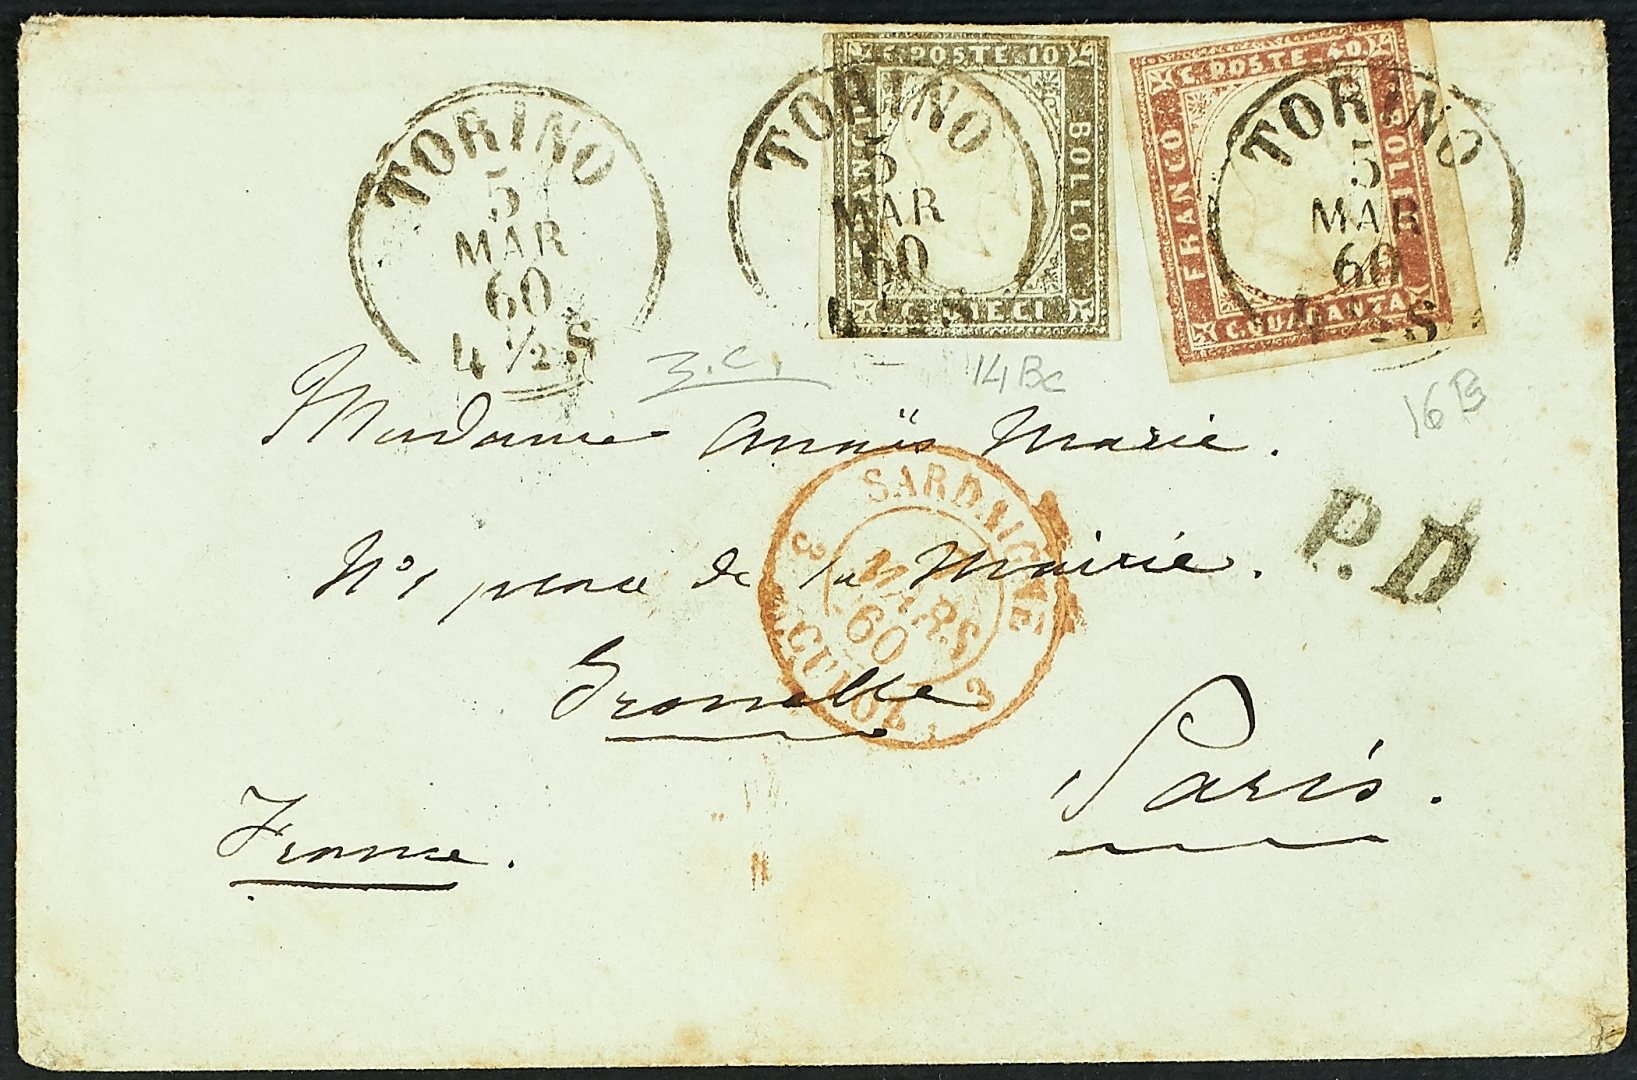 TORINO
5
MAR
60
4 ½ S
C. POSTE 10
BOLLO
C. DIECI
TORINO
5
MAR
60
C. POSTE 40
FRANCO
BOLLO
C. QUARANTA
TORINO
5
MAR
60
4 ½ S
14Bc
16B
Madame Anaïs Marie.
P.D
N° 1 place de la Mairie.
SARDAIGNE
MARS
60
3 CULOZ 3
Grenelle
Paris.
France.